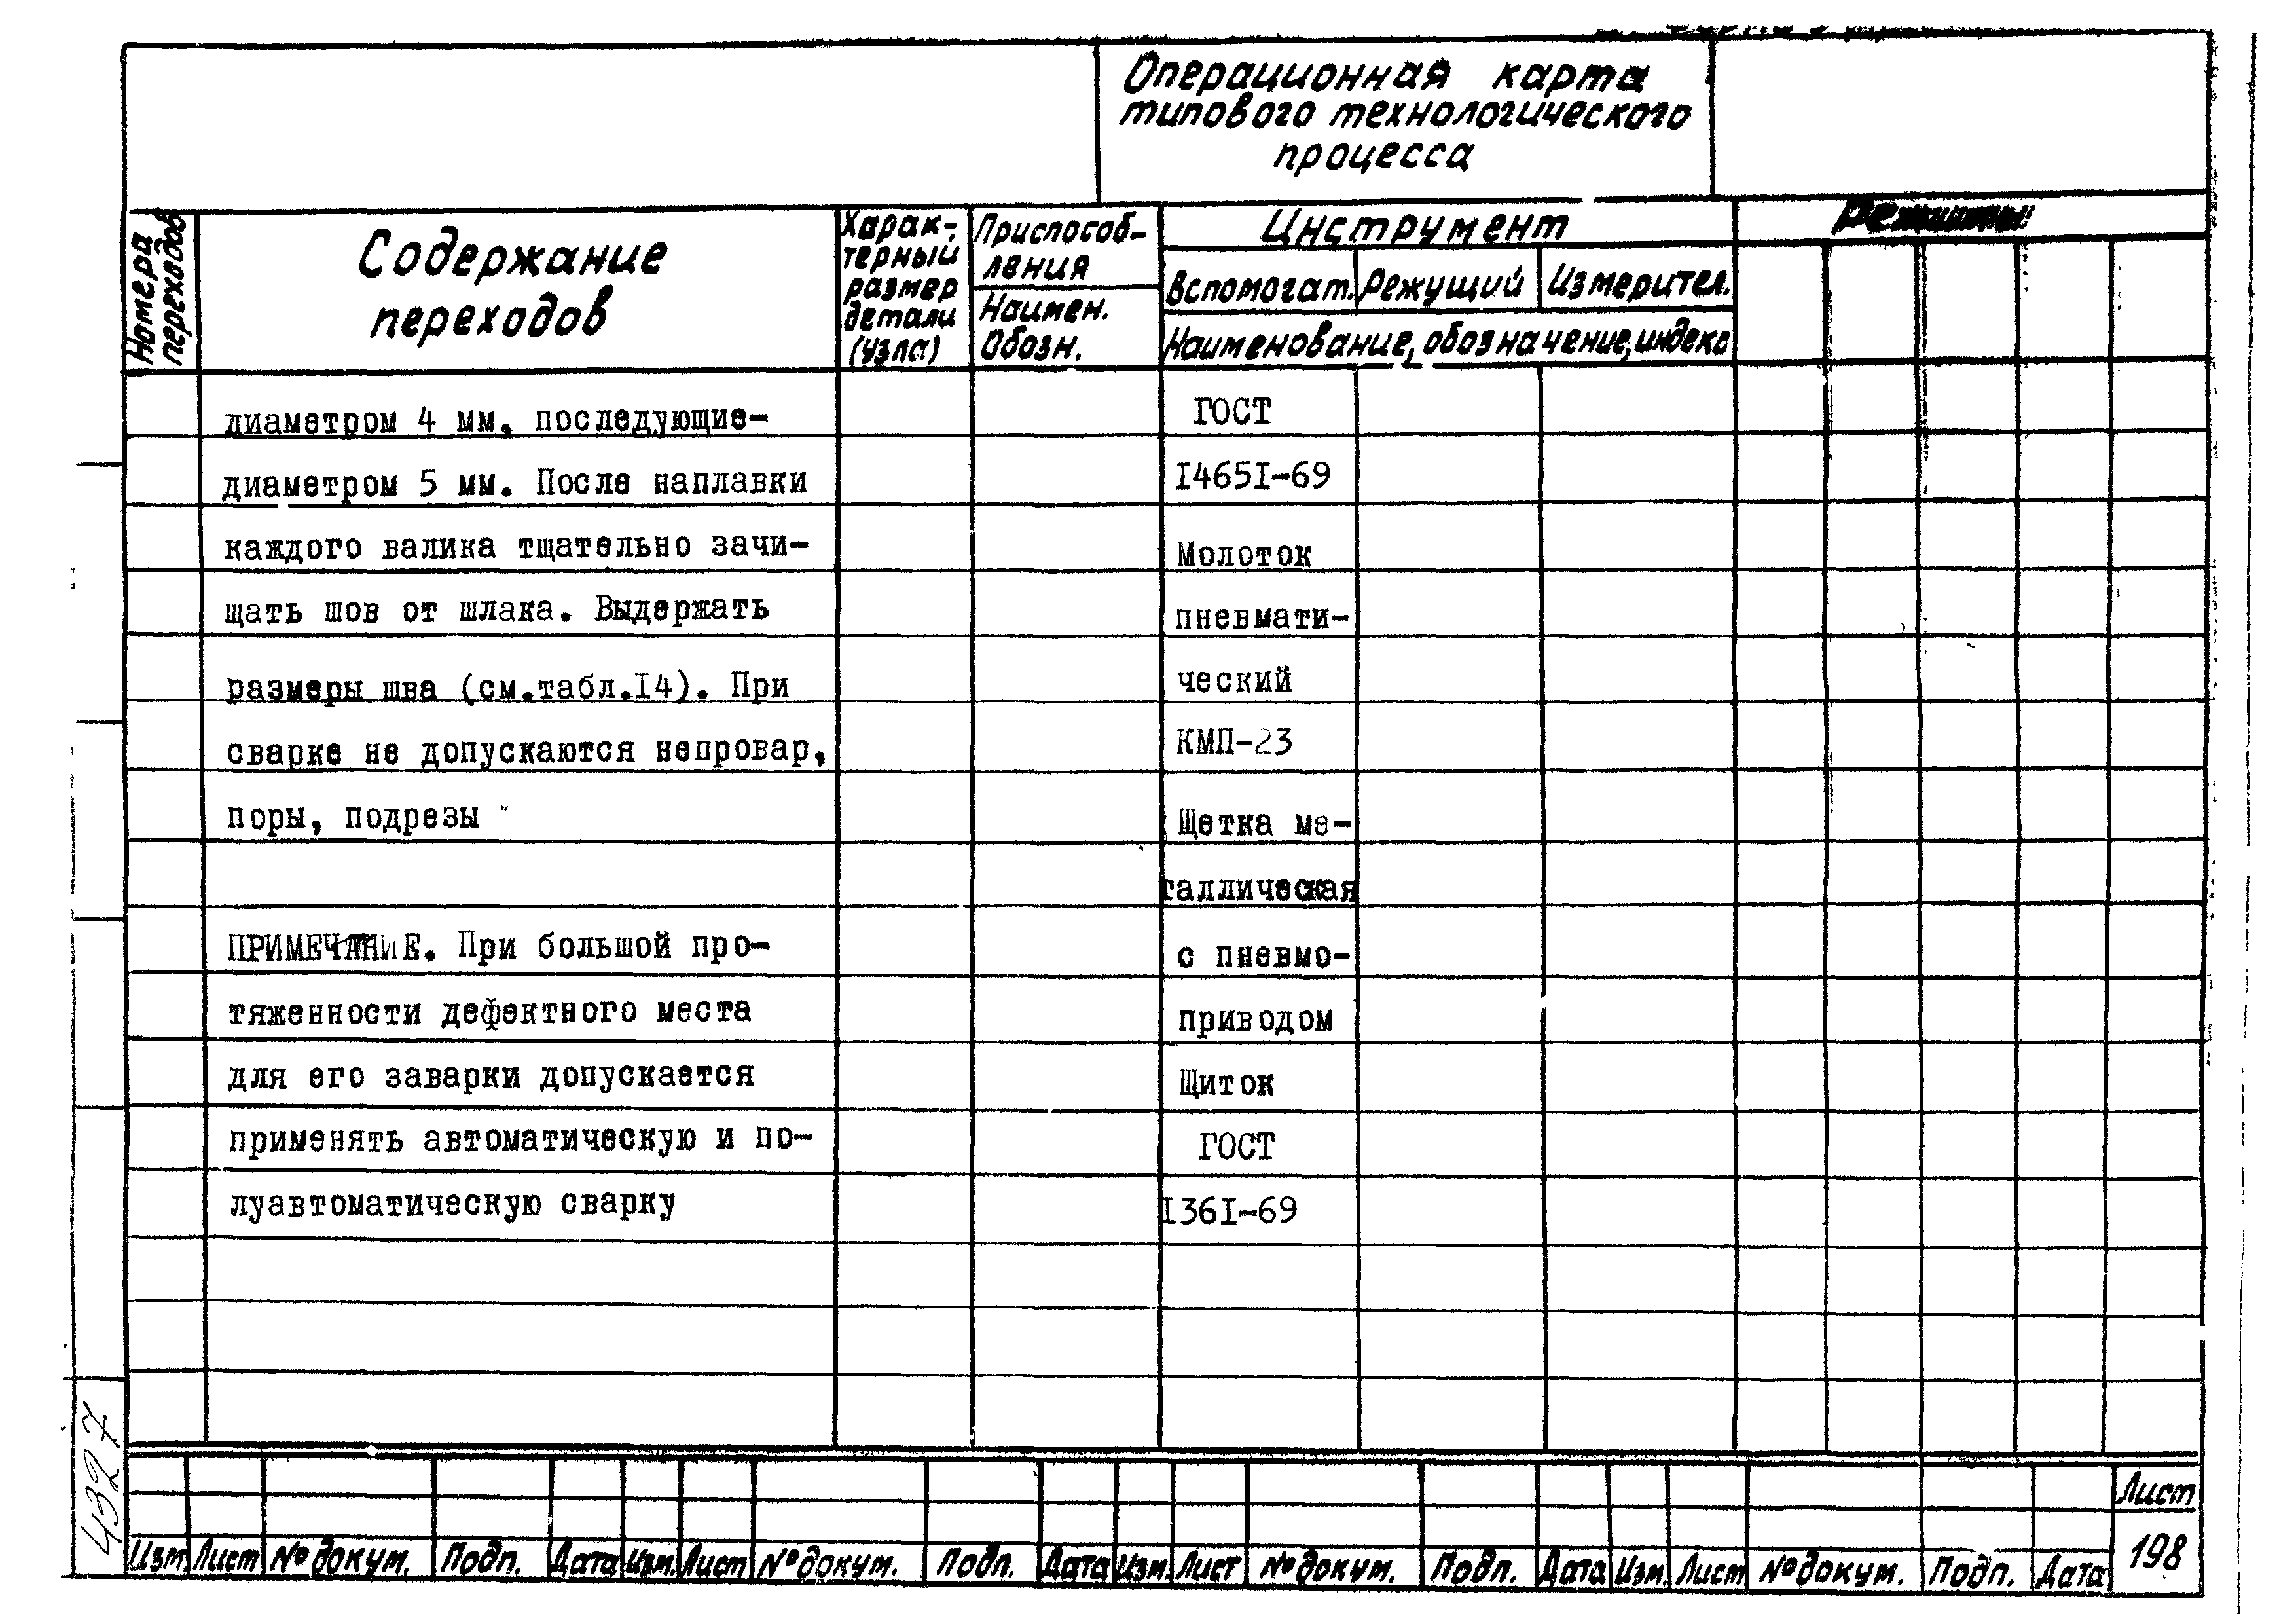 Операционная карта
типового технологического
процесса
Номера
переходов
Содержание
переходов
Харак-
терный
размер
детали
(узла)
Приспособ-
ления
Наимен.
Обозн.
Инструмент
Вспомогат. Режущий Измерител.
Наименование, обозначение, индекс
Режимы
диаметром 4 мм, последующие- ГОСТ
диаметром 5 мм. После наплавки I465I-69
каждого валика тщательно зачи- Молоток
щать шов от шлака. Выдержать пневмати-
размеры шва (см.табл.I4). При ческий
сварке не допускаются непровар, КМП-23
поры, подрезы Щетка ме-
таллическая
ПРИМЕЧАНИЕ. При большой про- с пневмо-
тяженности дефектного места приводом
для его заварки допускается Щиток
применять автоматическую и по- ГОСТ
луавтоматическую сварку I36I-69
4327
Лист
198
Изм. Лист № докум. Подп. Дата Изм. Лист № докум. Подп. Дата Изм. Лист № докум. Подп. Дата Изм. Лист № докум. Подп. Дата